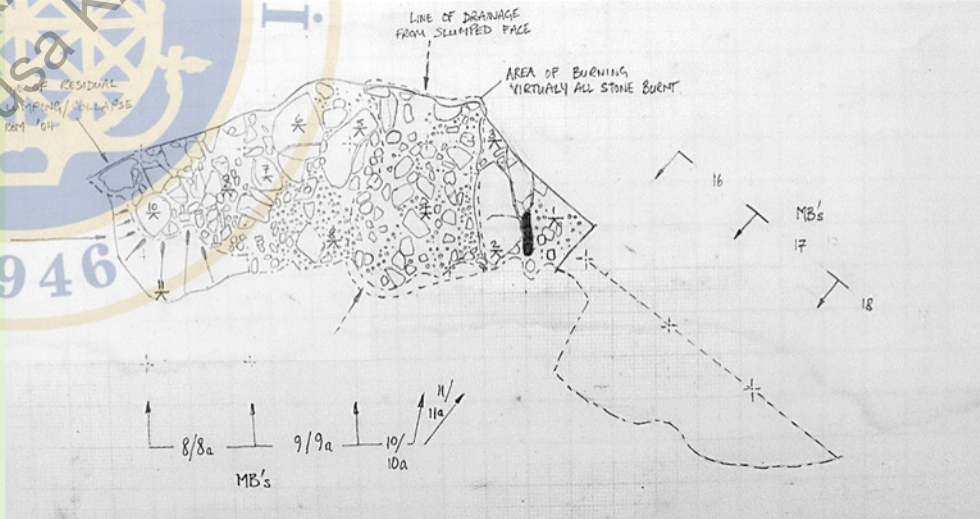 LINE OF DRAINAGE
FROM SLUMPED FACE
AREA OF BURNING
VIRTUALY ALL STONE BURNT.
OF RESIDUAL
/COLLAPSE
'04
16
MB's
17
18
10
7
1
2
11
946
8/8a
9/9a
10/
10a
11/
11a
MB's